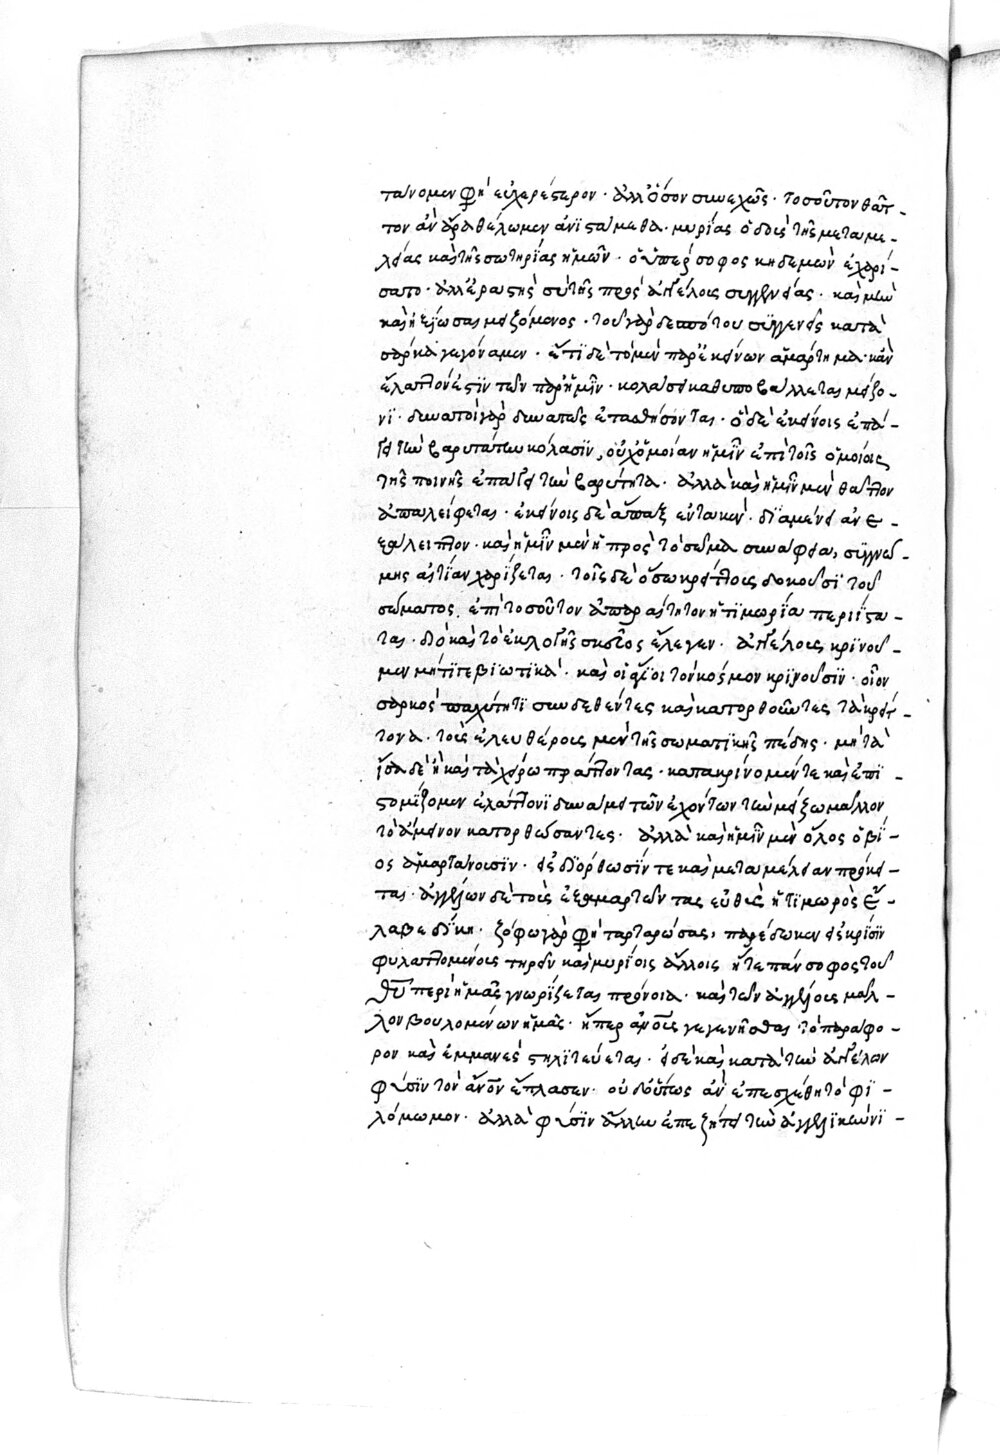 ταίνομεν φησὶ εὐχερέστερον · ἀλλ' ὅσον συνεχῶς · τοσοῦτον θᾶτ-
τον ἂν ἄρα θέλωμεν ἀνϊστάμεθα · μυρίας ὁδοὺς τῆς μεταμε-
λείας καὶ τῆς σωτηρίας ἡμῶν · ὁ ὑπέρσοφος κηδεμὼν ἐχαρί-
σατο · ἀλλ' ἐρᾷ τῆς πρὸς ἀγγέλοις συγγενείας · καὶ μὴν
καὶ ἠξίωσαι μείζονος · τοῦ γὰρ δεσπότου συγγενεῖς κατὰ
σάρκα γεγόναμεν · ἔτϊ δὲ τὸ μὲν παρ' ἐκείνων ἁμάρτημα · κἂν
ἔλαττον ἐστϊν τῶν παρ' ἡμῖν · κολάσει καθυποβάλλεται μείζο-
νϊ · δυνατοὶ γὰρ δυνατῶς ἐτασθήσονται · ὁ δὲ ἐκείνοις ἐπά-
γει τὴν βαρυτάτην κόλασϊν, οὐχ ὁμοίαν ἡμῖν ἐπὶ τοῖς ὁμοίοις
τῆς ποινῆς ἐπάγει τὴν βαρύτητα · ἀλλὰ καὶ ἡμῖν μὲν θᾶττον
ἀπαλείφεται · ἐκείνοις δὲ ἅπαξ ἐντακὲν · διαμένει ἀνε-
ξάλειπτον · καὶ ἡμῖν μὲν ἡ πρὸς τὸ σῶμα συνάφεια, συγγνώ-
μης αἰτίαν χαρίζεται · τοῖς δὲ ὅσῳ κρείττοις δοκοῦσϊ τοῦ
σώματος, ἐπὶ τοσοῦτον ἀπαραίτητον ἡ τϊμωρία περιΐστα-
ται · διὸ καὶ τὸ ἐκλογῆς σκεῦος ἔλεγεν · ἀγγέλους κρϊνοῦ-
μεν μήτϊγε βϊωτϊκά · καὶ οἱ ἅγϊοι τὸν κόσμον κρϊνοῦσϊν · οἷον
σαρκὸς παχύτητϊ συνδεθέντες καὶ κατορθοῦντες τὰ κρείτ-
τονα · τοὺς ἐλευθέρους μὲν τῆς σωματϊκῆς πέδης · μὴ τὰ
ἴσα δὲ ἢ καὶ τὰ χείρω πράττοντας · κατακρίνομέν τε καὶ ἐπϊ-
στομϊζομεν ἐλάττονϊ δυνάμει τῶν ἐχόντων τὴν μείζω μᾶλλον
τὸ ἄμεινον κατορθώσαντες · ἀλλὰ καὶ ἡμῖν μὲν ὅλος ὁ βϊ-
ος ἁμαρτάνουσϊν · εἰς διόρθωσϊν τε καὶ μεταμέλειαν πρόκει-
ται · ἀγγέλων δὲ τοὺς ἐξαμαρτῶντας εὐθὺς ἡ τϊμωρὸς ἔ-
λαβε δίκη · ζόφῳ γὰρ φησὶ ταρταρώσας, παρέδωκεν εἰς κρίσϊν
φυλαττομένοις τηρεῖν καὶ μυρίοις ἄλλοις ἥτε πάνσοφος τοῦ
θῦ περὶ ἡμᾶς γνωρϊζεται πρόνοια · καὶ τῶν ἀγγέλους μᾶλ-
λον βουλομένων ἡμᾶς · ἤπερ ἀνοῦς γεγενῆσθαι τὸ παράφο-
ρον καὶ ἐμμανὲς στηλϊτεύεται · εἰ δὲ καὶ κατὰ τὴν ἀγγέλων
φύσϊν τὸν ἄνον ἔπλασεν · οὐδ' οὕτως ἂν ἐπεσχέθη τὸ φϊ-
λόμωμον · ἀλλὰ φύσϊν ἄλλην ἐπεζήτει τὴν ἀγγελϊκὴν νϊ-